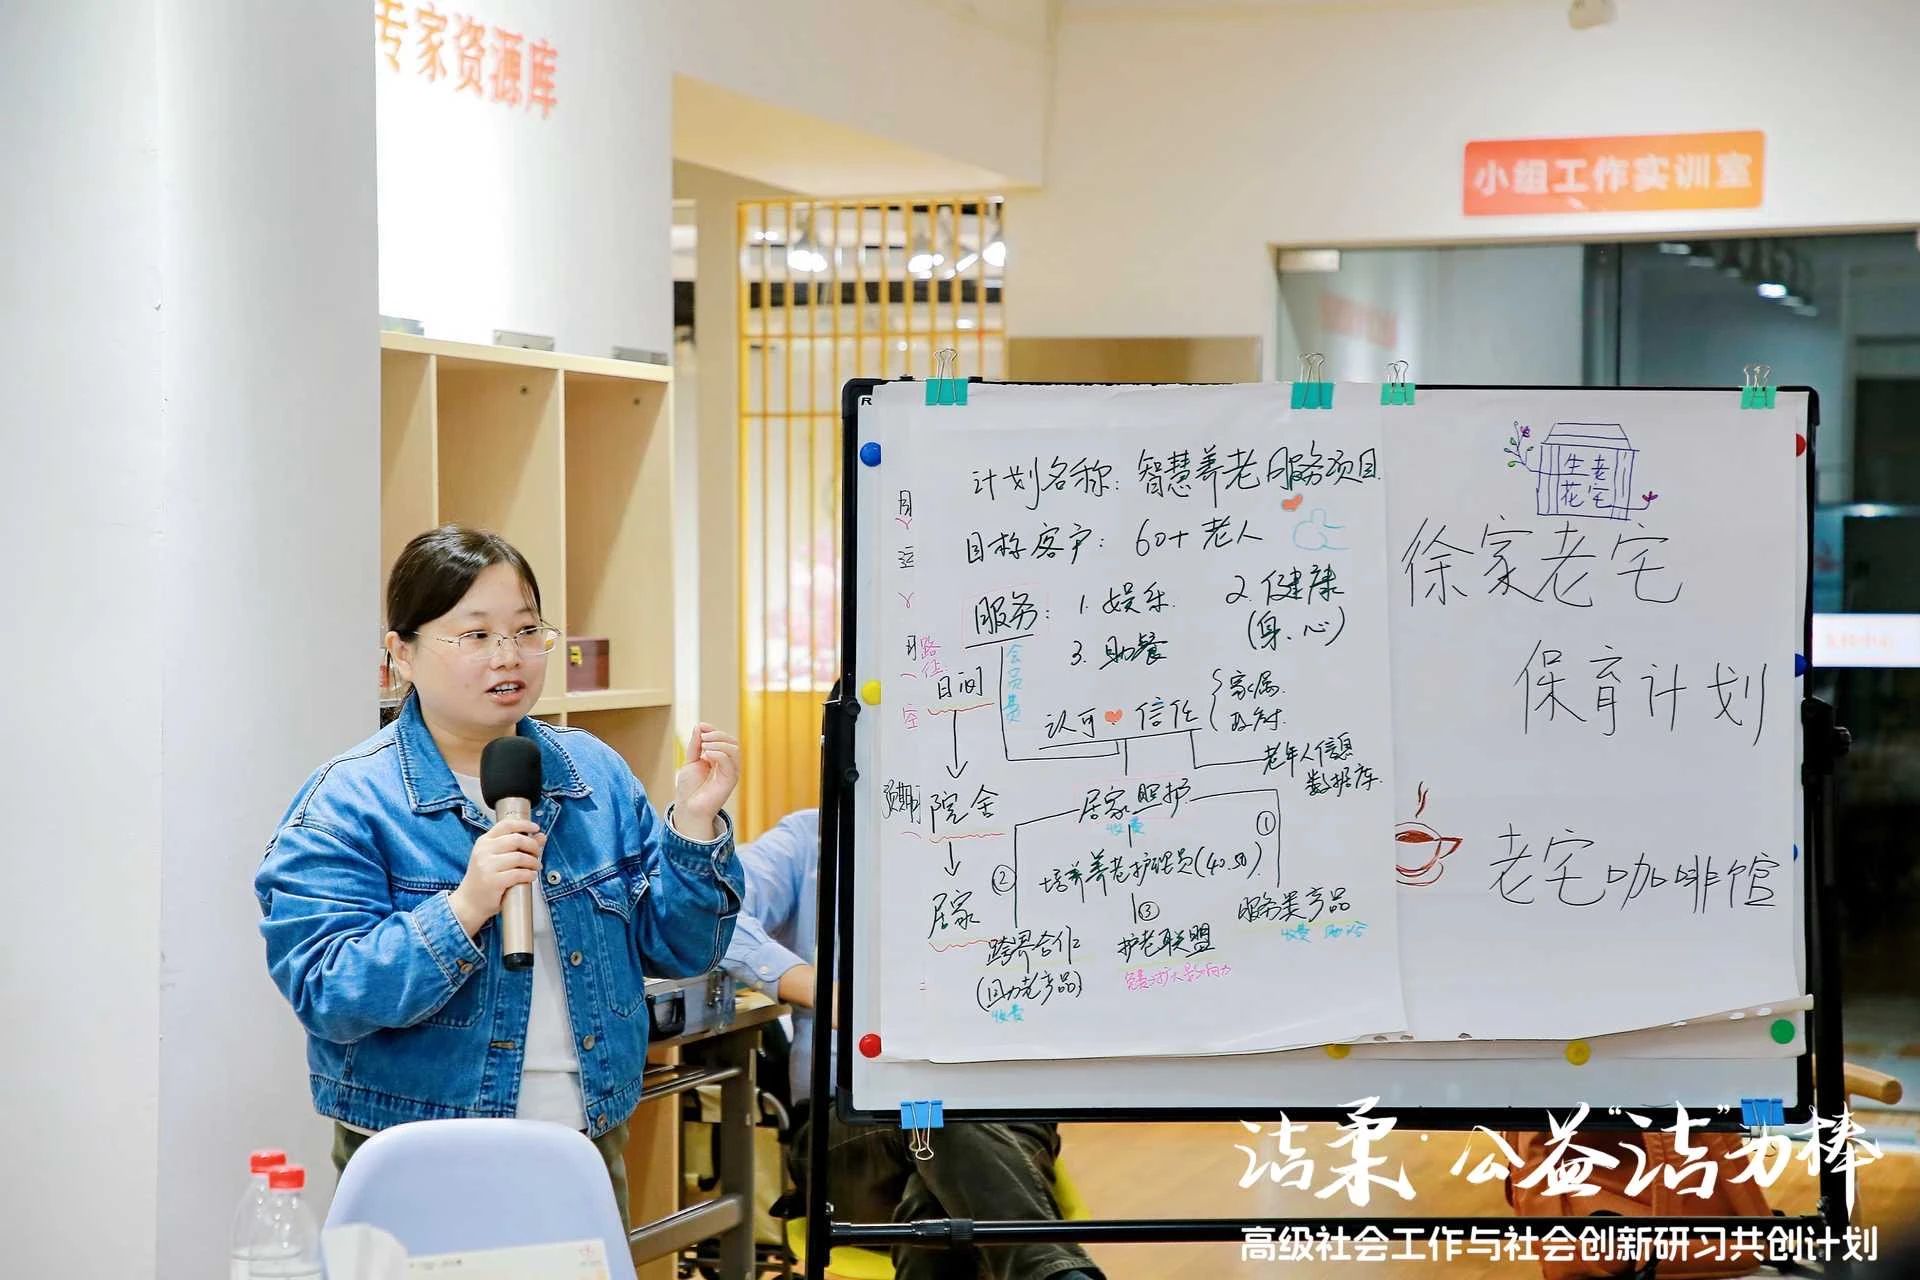 专家资源库
小组工作实训室
计划名称：智慧养老服务项目
目标客户：60+老人
服务：1.娱乐 2.健康
(身、心)
3.助餐
路径
日间
会员费
认可 信任
家属
政府
老年人信息
数据库
预期
院舍
居家照护
收费
①
②
培养养老护理员(40.50)
居家
③
跨界合作
护老联盟
服务类产品
收费
(回力老产品)
收费
生老
花宅
徐家老宅
保育计划
老宅咖啡馆
洁柔·公益“洁”力棒
高级社会工作与社会创新研习共创计划